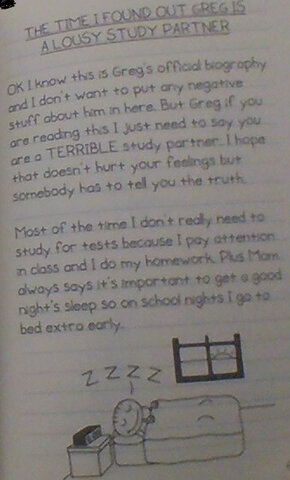 THE TIME I FOUND OUT GREG IS
A LOUSY STUDY PARTNER
OK I know this is Greg's official biography
and I don't want to put any negative
stuff about him in here. But Greg if you
are reading this I just need to say you
are a TERRIBLE study partner. I hope
that doesn't hurt your feelings but
somebody has to tell you the truth.
Most of the time I don't really need to
study for tests because I pay attention
in class and I do my homework. Plus Mom
always says it's important to get a good
night's sleep so on school nights I go to
bed extra early.
Z Z Z Z